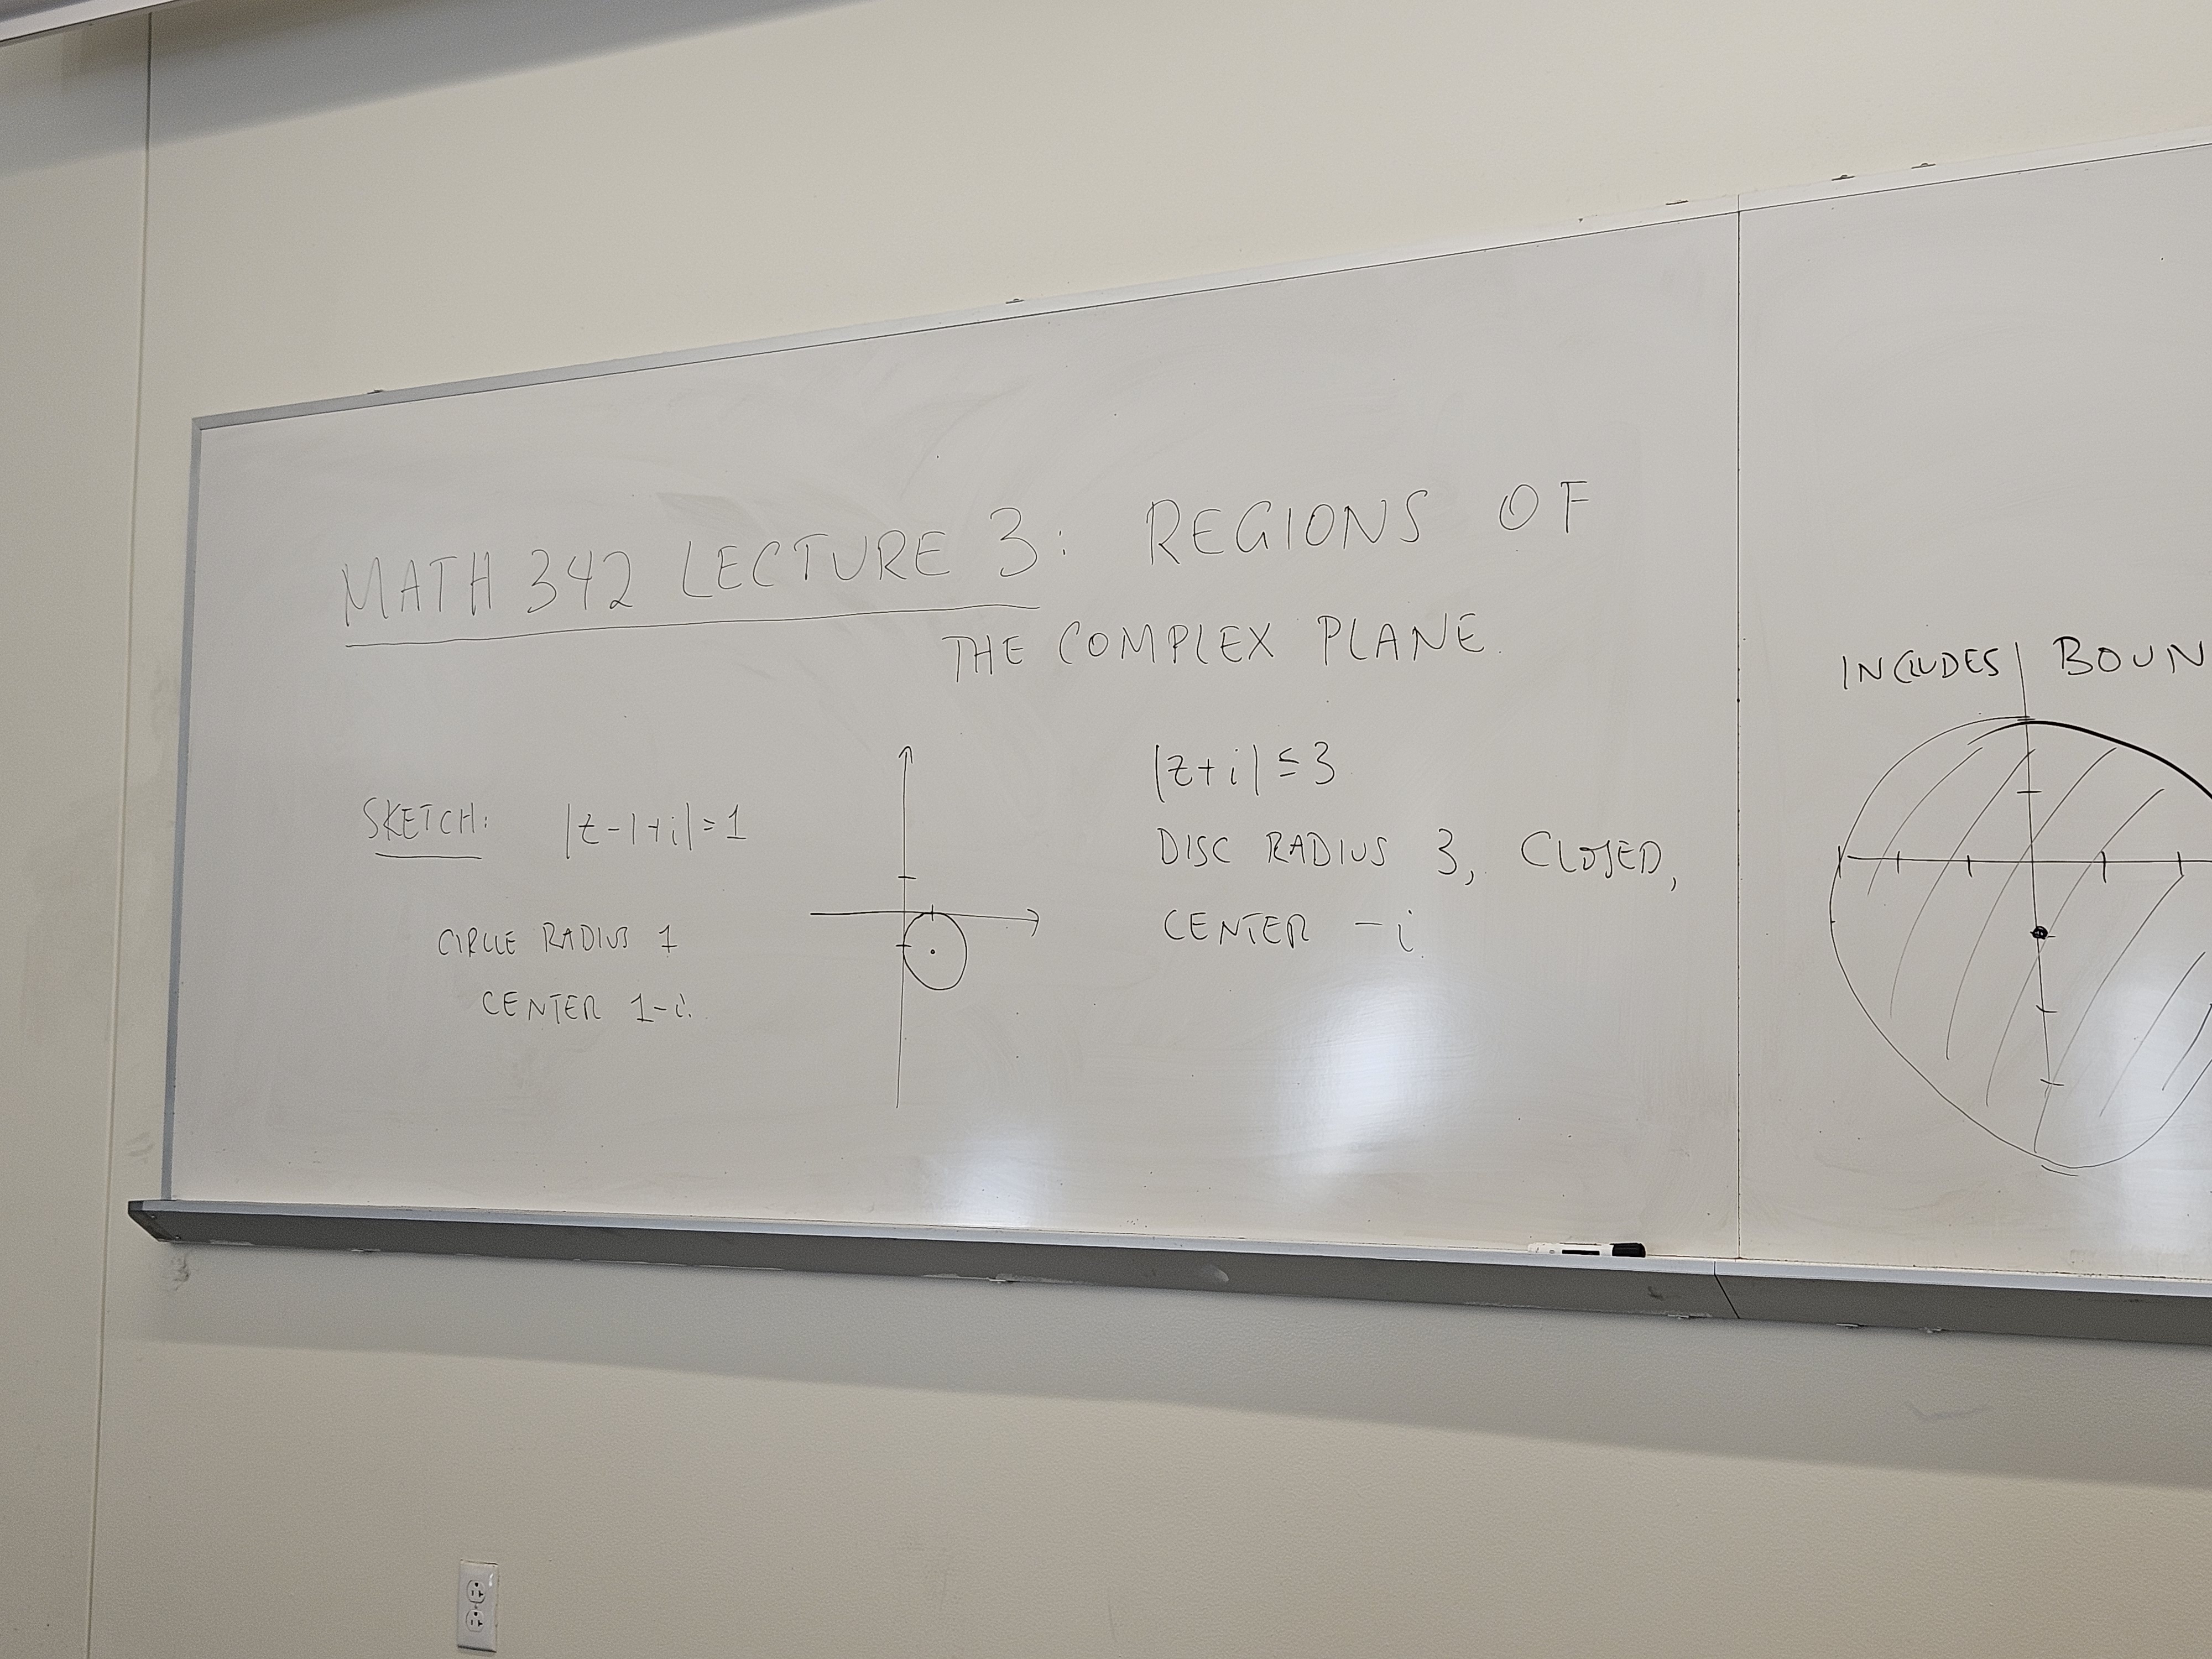 MATH 342 LECTURE 3: REGIONS OF
THE COMPLEX PLANE.
SKETCH: |z-1+i|=1
CIRCLE RADIUS 1
CENTER 1-i.
|z+i| ≤ 3
DISC RADIUS 3, CLOSED,
CENTER -i
INCLUDES BOUN